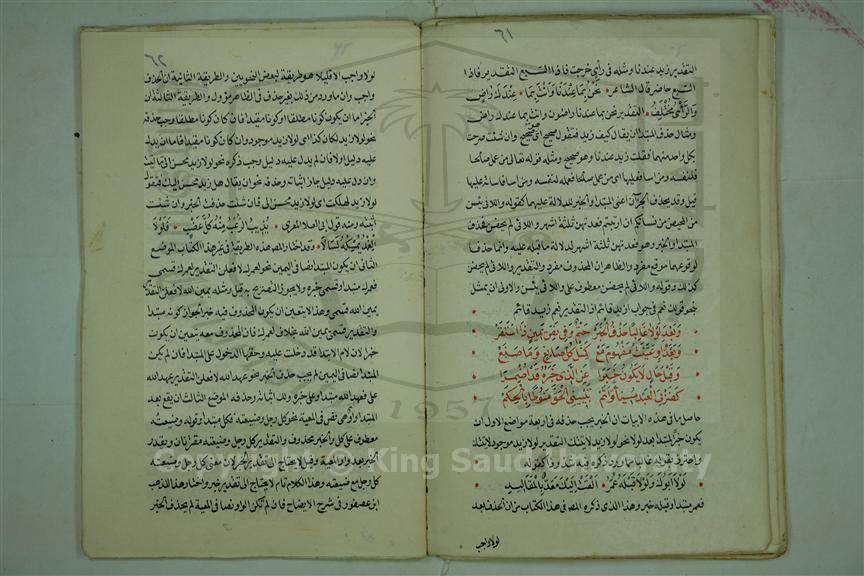 ٦١
التقدير زيد عندنا ومثله في رأي خرجت فاذا السبع التقدير فاذا
السبع حاضر قال الشاعر نحن بما عندنا وانت بما عندك راض
والرأي مختلف التقدير نحن بما عندنا راضون وانت بما عندك راض
ومثال حذف المبتدا ان يقال كيف زيد فتقول صحيح اي هو صحيح وان شئت صرحت
بكل واحد منهما فقلت زيد عندنا وهو صحيح ومثله قوله تعالى من عمل صالحا
فلنفسه ومن اسا فعليها اي من عمل صالحا فعمله لنفسه ومن اسا فاساته عليها
قيل وقد يحذف الجزآن اعني المبتدا والخبر للدلالة عليهما كقوله واللائي يئسن
من المحيض من نسائكم ان ارتبتم فعدتهن ثلثة اشهر واللائي لم يحضن فحذف
المبتدا والخبر وهو فعدتهن ثلثة اشهر لدلالة ما قبله عليه وانما حذفا
لوقوعهما موقع مفرد والظاهر ان المحذوف مفرد والتقدير واللائي لم يحضن
كذلك وقوله واللائي لم يحضن معطوف على واللائي يئسن والاولى ان يمثل
بنحو قولك نعم في جواب ازيد قائم اذ التقدير نعم زيد قائم
وبعد لولا غالبا حذف الخبر حتم وفي نص يمين ذا استقر
وبعد واو عينت مفهوم مع كمثل كل صانع وما صنع
وقبل حال لا يكون خبرا عن الذي خبره قد اضمرا
كضربي العبد مسيئا واتم تبييني الحق منوطا بالحكم
حاصل ما في هذه الابيات ان الخبر يجب حذفه في اربعة مواضع الاول ان
يكون خبرا لمبتدا بعد لولا نحو لولا زيد لاتيتك التقدير لولا زيد موجود لاتيتك
واحترز بقوله غالبا مما ورد ذكره فيه شذوذا كقوله
لولا ابوك ولولا قبله عمر القت اليك معد بالمقاليد
فعمر مبتدا وقبله خبر وهذا الذي ذكره المص في هذا الكتاب من ان الحذف بعد
لولا واجب
٦٢
لولا واجب الا قليلا هو طريقة لبعض النحويين والطريقة الثانية ان الحذف
واجب وان ما ورد من ذلك بغير حذف في الظاهر مؤول والطريقة الثالثة ان
الخبر اما ان يكون كونا مطلقا او كونا مقيدا فان كان كونا مطلقا وجب حذفه
نحو لولا زيد لكان كذا اي لولا زيد موجود وان كان كونا مقيدا فاما ان يدل
عليه دليل اولا فان لم يدل عليه دليل وجب ذكره نحو لولا زيد محسن الي ما اتيت
وان دل عليه دليل جاز اثباته وحذفه نحو ان يقال هل زيد محسن اليك فتقول
لولا زيد لهلكت اي لولا زيد محسن الي فان شئت حذفت الخبر وان شئت
اثبته ومنه قول ابي العلا المعري يذيب الرعب منه كل عضب فلولا
الغمد يمسكه لسالا وقد اختار المص هذه الطريقة في غير هذا الكتاب الموضع
الثاني ان يكون المبتدا نصا في اليمين نحو لعمرك لافعلن التقدير لعمرك قسمي
فعمرك مبتدا وقسمي خبره ولا يجوز التصريح به قيل ومثله يمين الله لافعلن التقدير
يمين الله قسمي وهذا لا يتعين ان يكون المحذوف فيه خبرا لجواز كونه مبتدا
والتقدير قسمي يمين الله بخلاف لعمرك فان المحذوف معه يتعين ان يكون
خبرا لان لام الابتدا قد دخلت عليه وحقها الدخول على المبتدا فان لم يكن
المبتدا نصا في اليمين لم يجب حذف الخبر نحو عهد الله لافعلن التقدير عهد الله
علي فعهد الله مبتدا وعلي خبره ولك اثباته وحذفه الموضع الثالث ان يقع بعد
المبتدا واو هي نص في المعية نحو كل رجل وضيعته فكل مبتدا وقوله وضيعته
معطوف على كل والخبر محذوف والتقدير كل رجل وضيعته مقترنان ويقدر
الخبر بعد واو المعية وقيل لا يحتاج الى تقدير الخبر لان معنى كل رجل وضيعته
كل رجل مع ضيعته وهذا الكلام تام لا يحتاج الى تقدير خبر واختار هذا المذهب
ابن عصفور في شرح الايضاح فان لم تكن الواو نصا في المعية لم يحذف الخبر
Copyright © King Saud University
1957